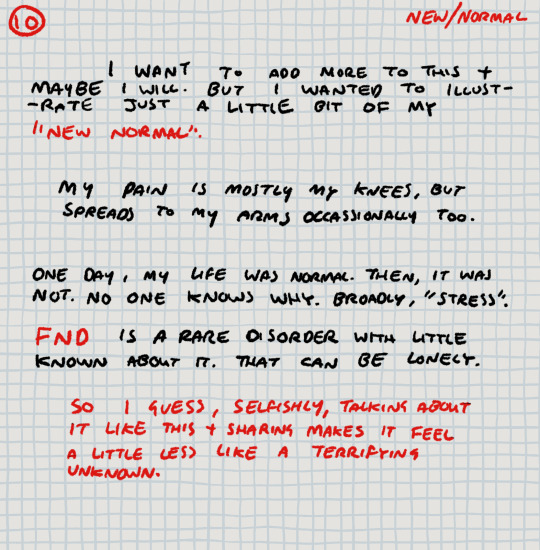 10
NEW/NORMAL
I WANT TO ADD MORE TO THIS +
MAYBE I WILL. BUT I WANTED TO ILLUST-
-RATE JUST A LITTLE BIT OF MY
"NEW NORMAL".
MY PAIN IS MOSTLY MY KNEES, BUT
SPREADS TO MY ARMS OCCASSIONALLY TOO.
ONE DAY, MY LIFE WAS NORMAL. THEN, IT WAS
NOT. NO ONE KNOWS WHY. BROADLY, "STRESS".
FND IS A RARE DISORDER WITH LITTLE
KNOWN ABOUT IT. THAT CAN BE LONELY.
SO I GUESS, SELFISHLY, TALKING ABOUT
IT LIKE THIS + SHARING MAKES IT FEEL
A LITTLE LESS LIKE A TERRIFYING
UNKNOWN.